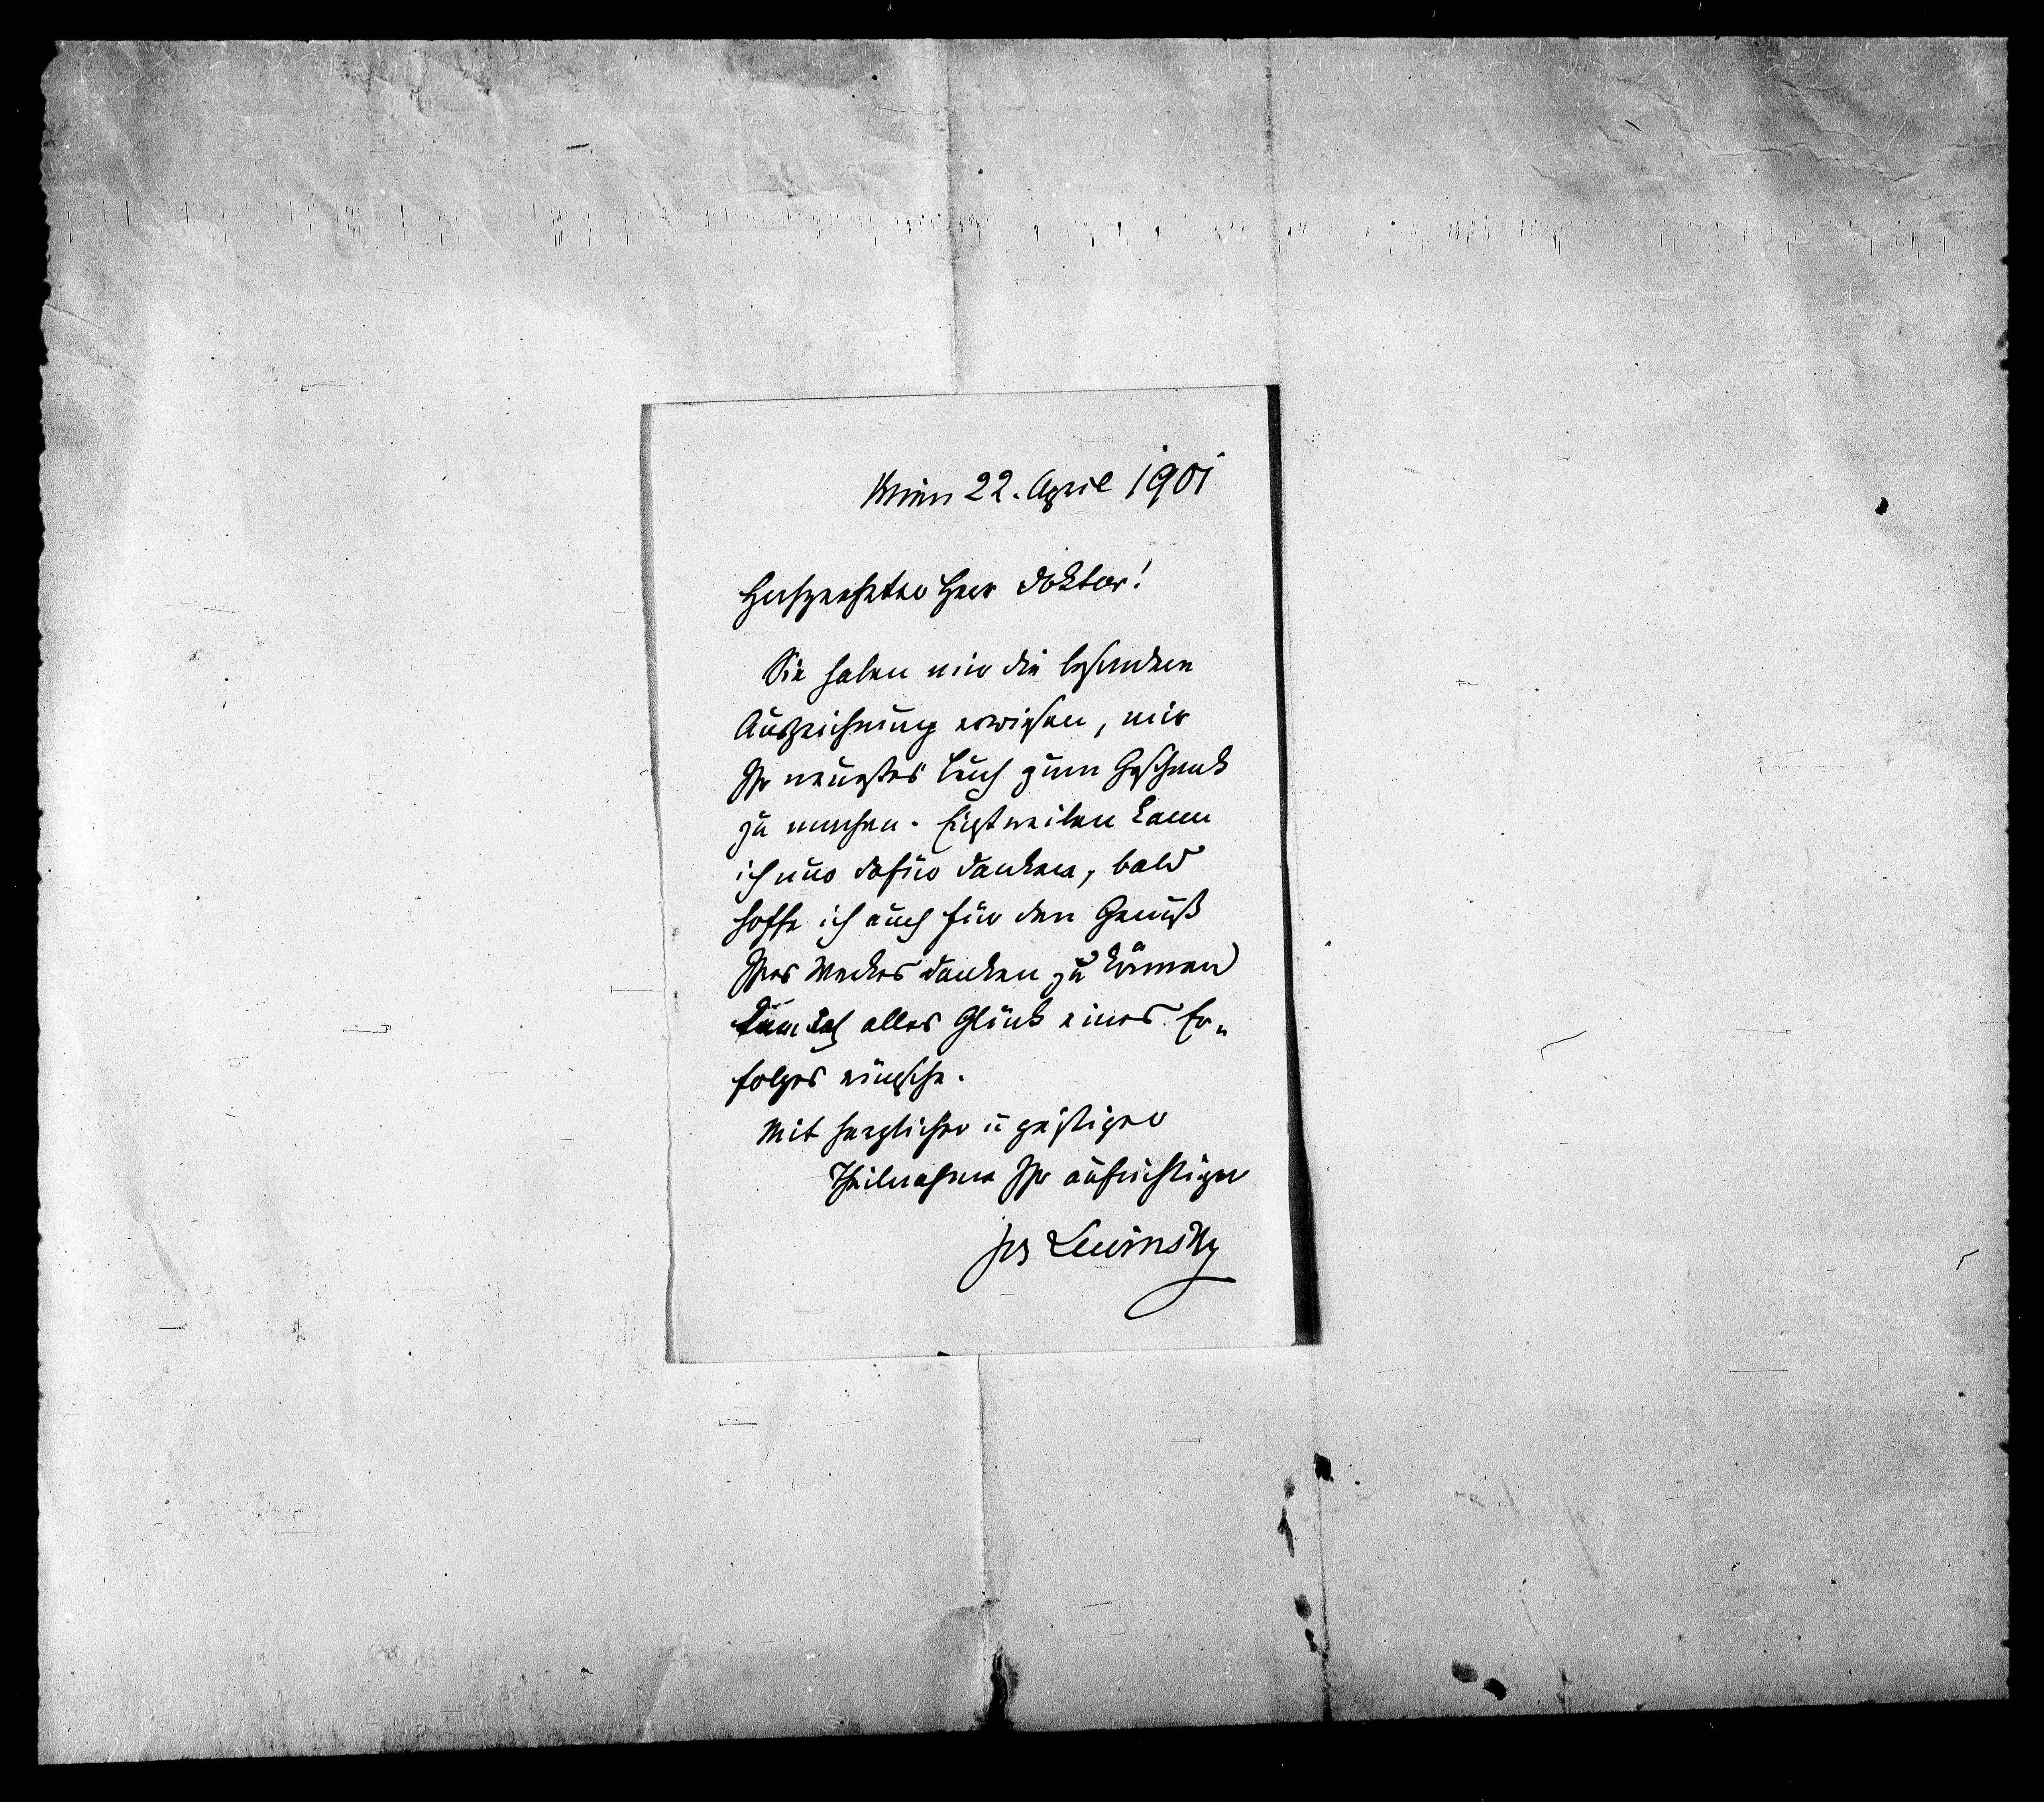 Wien 22. April 1901
Hochgeehrter Herr Doktor!
Sie haben mir die besondere
Auszeichnung erwiesen, mir
Ihr neuestes Buch zum Geschenk
zu machen. Einstweilen kann
ich nur dafür danken, bald
hoffe ich auch für den Genuß
Ihres Werkes danken zu können
alles Glück eines Er-
folges wünsche.
Mit herzlicher u geistiger
Theilnahme Ihr aufrichtiger
Jos Lewinsky